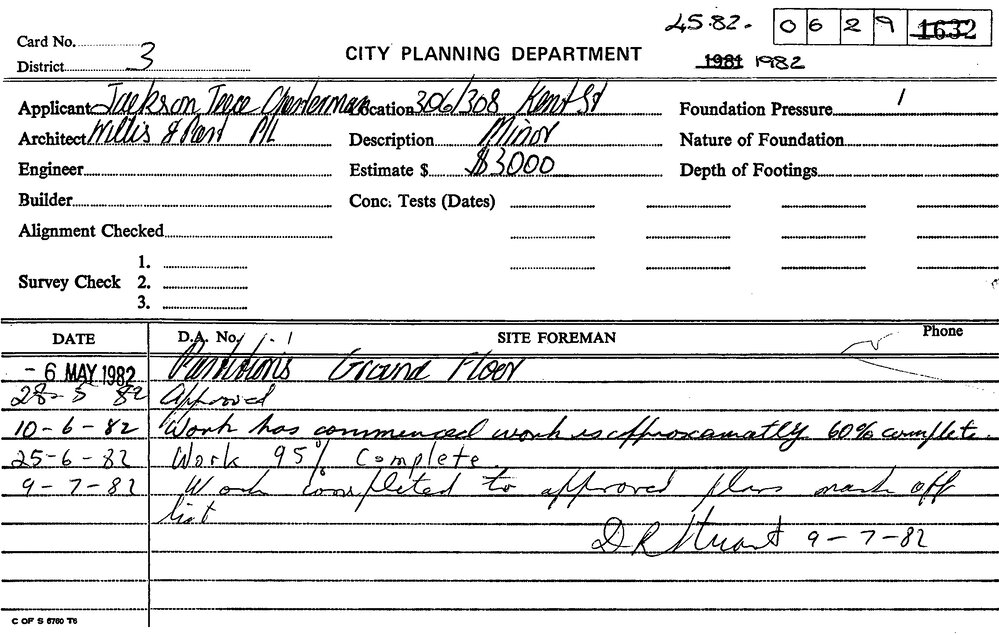 45.82. 0629 1632
Card No.
District 3
CITY PLANNING DEPARTMENT
1981 1982
Applicant Jackson Teece Chesterman Location 306/308 Kent St Foundation Pressure
Architect Willis & Part P/L Description Minor Nature of Foundation
Engineer Estimate $ $3000 Depth of Footings
Builder Conc. Tests (Dates)
Alignment Checked
1.
Survey Check 2.
3.
DATE D.A. No. SITE FOREMAN Phone
- 6 MAY 1982 Partitions Ground Floor
28-5 82 Approved
10-6-82 Work has commenced work is approxamattly 60% complete.
25-6-82 Work 95% Complete.
9-7-82 Work completed to approved plans mark off
list
D R Stuart 9-7-82
C OF S 6760 T6